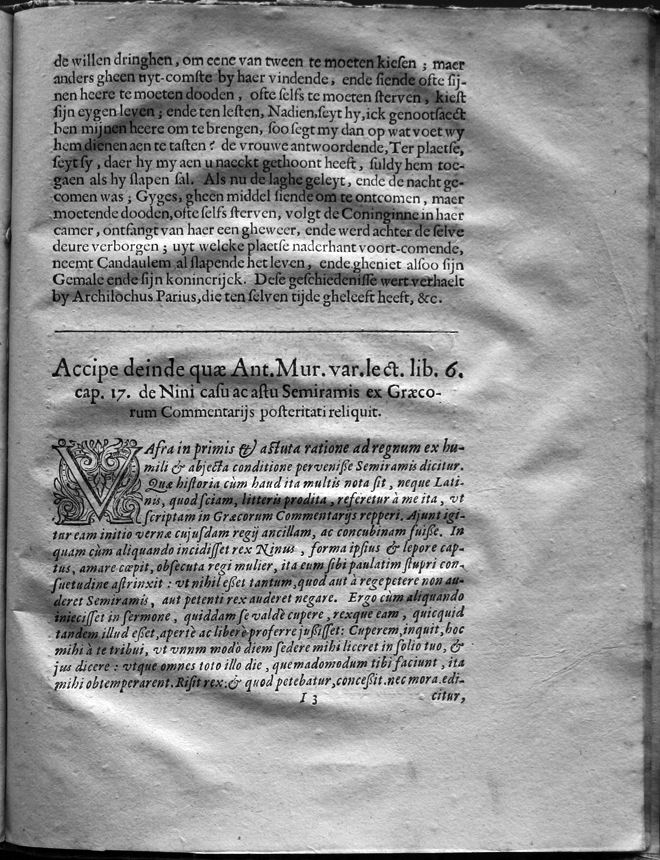 de willen dringhen, om eene van tween te moeten kiesen ; maer
anders gheen uyt-comste by haer vindende, ende siende ofte sij-
nen heere te moeten dooden, ofte selfs te moeten sterven, kiest
sijn eygen leven ; ende ten lesten, Nadien, seyt hy, ick genootsaect
ben mijnen heere om te brengen, soo segt my dan op wat voet wy
hem dienen aen te tasten? de vrouwe antwoordende, Ter plaetse,
seyt sy, daer hy my aen u naeckt gethoont heeft, suldy hem toe-
gaen als hy slapen sal. Als nu de laghe geleyt, ende de nacht ge-
comen was ; Gyges, gheen middel siende om te ontcomen, maer
moetende dooden, ofte selfs sterven, volgt de Coninginne in haer
camer, ontfangt van haer een gheweer, ende werd achter de selve
deure verborgen ; uyt welcke plaetse naderhant voort-comende,
neemt Candaulem al slapende het leven, ende gheniet alsoo sijn
Gemale ende sijn konincrijck. Dese geschiedenisse wert verhaelt
by Archilochus Parius, die ten selven tijde gheleeft heeft, &c.
Accipe deinde quæ Ant. Mur. var. lect. lib. 6.
cap. 17. de Nini casu ac astu Semiramis ex Græco-
rum Commentarijs posteritati reliquit.
VAfra in primis & astuta ratione ad regnum ex hu-
mili & abjecta conditione pervenisse Semiramis dicitur.
Quæ historia cùm haud ita multis nota sit, neque Lati-
nis, quod sciam, litteris prodita, referetur à me ita, vt
scriptam in Græcorum Commentarijs repperi. Ajunt igi-
tur eam initio vernæ cujusdam regij ancillam, ac concubinam fuisse. In
quam cùm aliquando incidisset rex Ninus, forma ipsius & lepore cap-
tus, amare cœpit, obsecuta regi mulier, ita eum sibi paulatim stupri con-
suetudine astrinxit : vt nihil esset tantum, quod aut à rege petere non au-
deret Semiramis, aut petenti rex auderet negare. Ergo cùm aliquando
iniecisset in sermone, quiddam se valdè cupere, rexque eam, quicquid
tandem illud esset, apertè ac liberè proferre jußisset: Cuperem, inquit, hoc
mihi à te tribui, vt vnnm modò diem sedere mihi liceret in solio tuo, &
jus dicere : vtque omnes toto illo die, quemadomodum tibi faciunt, ita
mihi obtemperarent. Risit rex: & quod petebatur, conceßit. nec mora. edi-
I 3 citur,